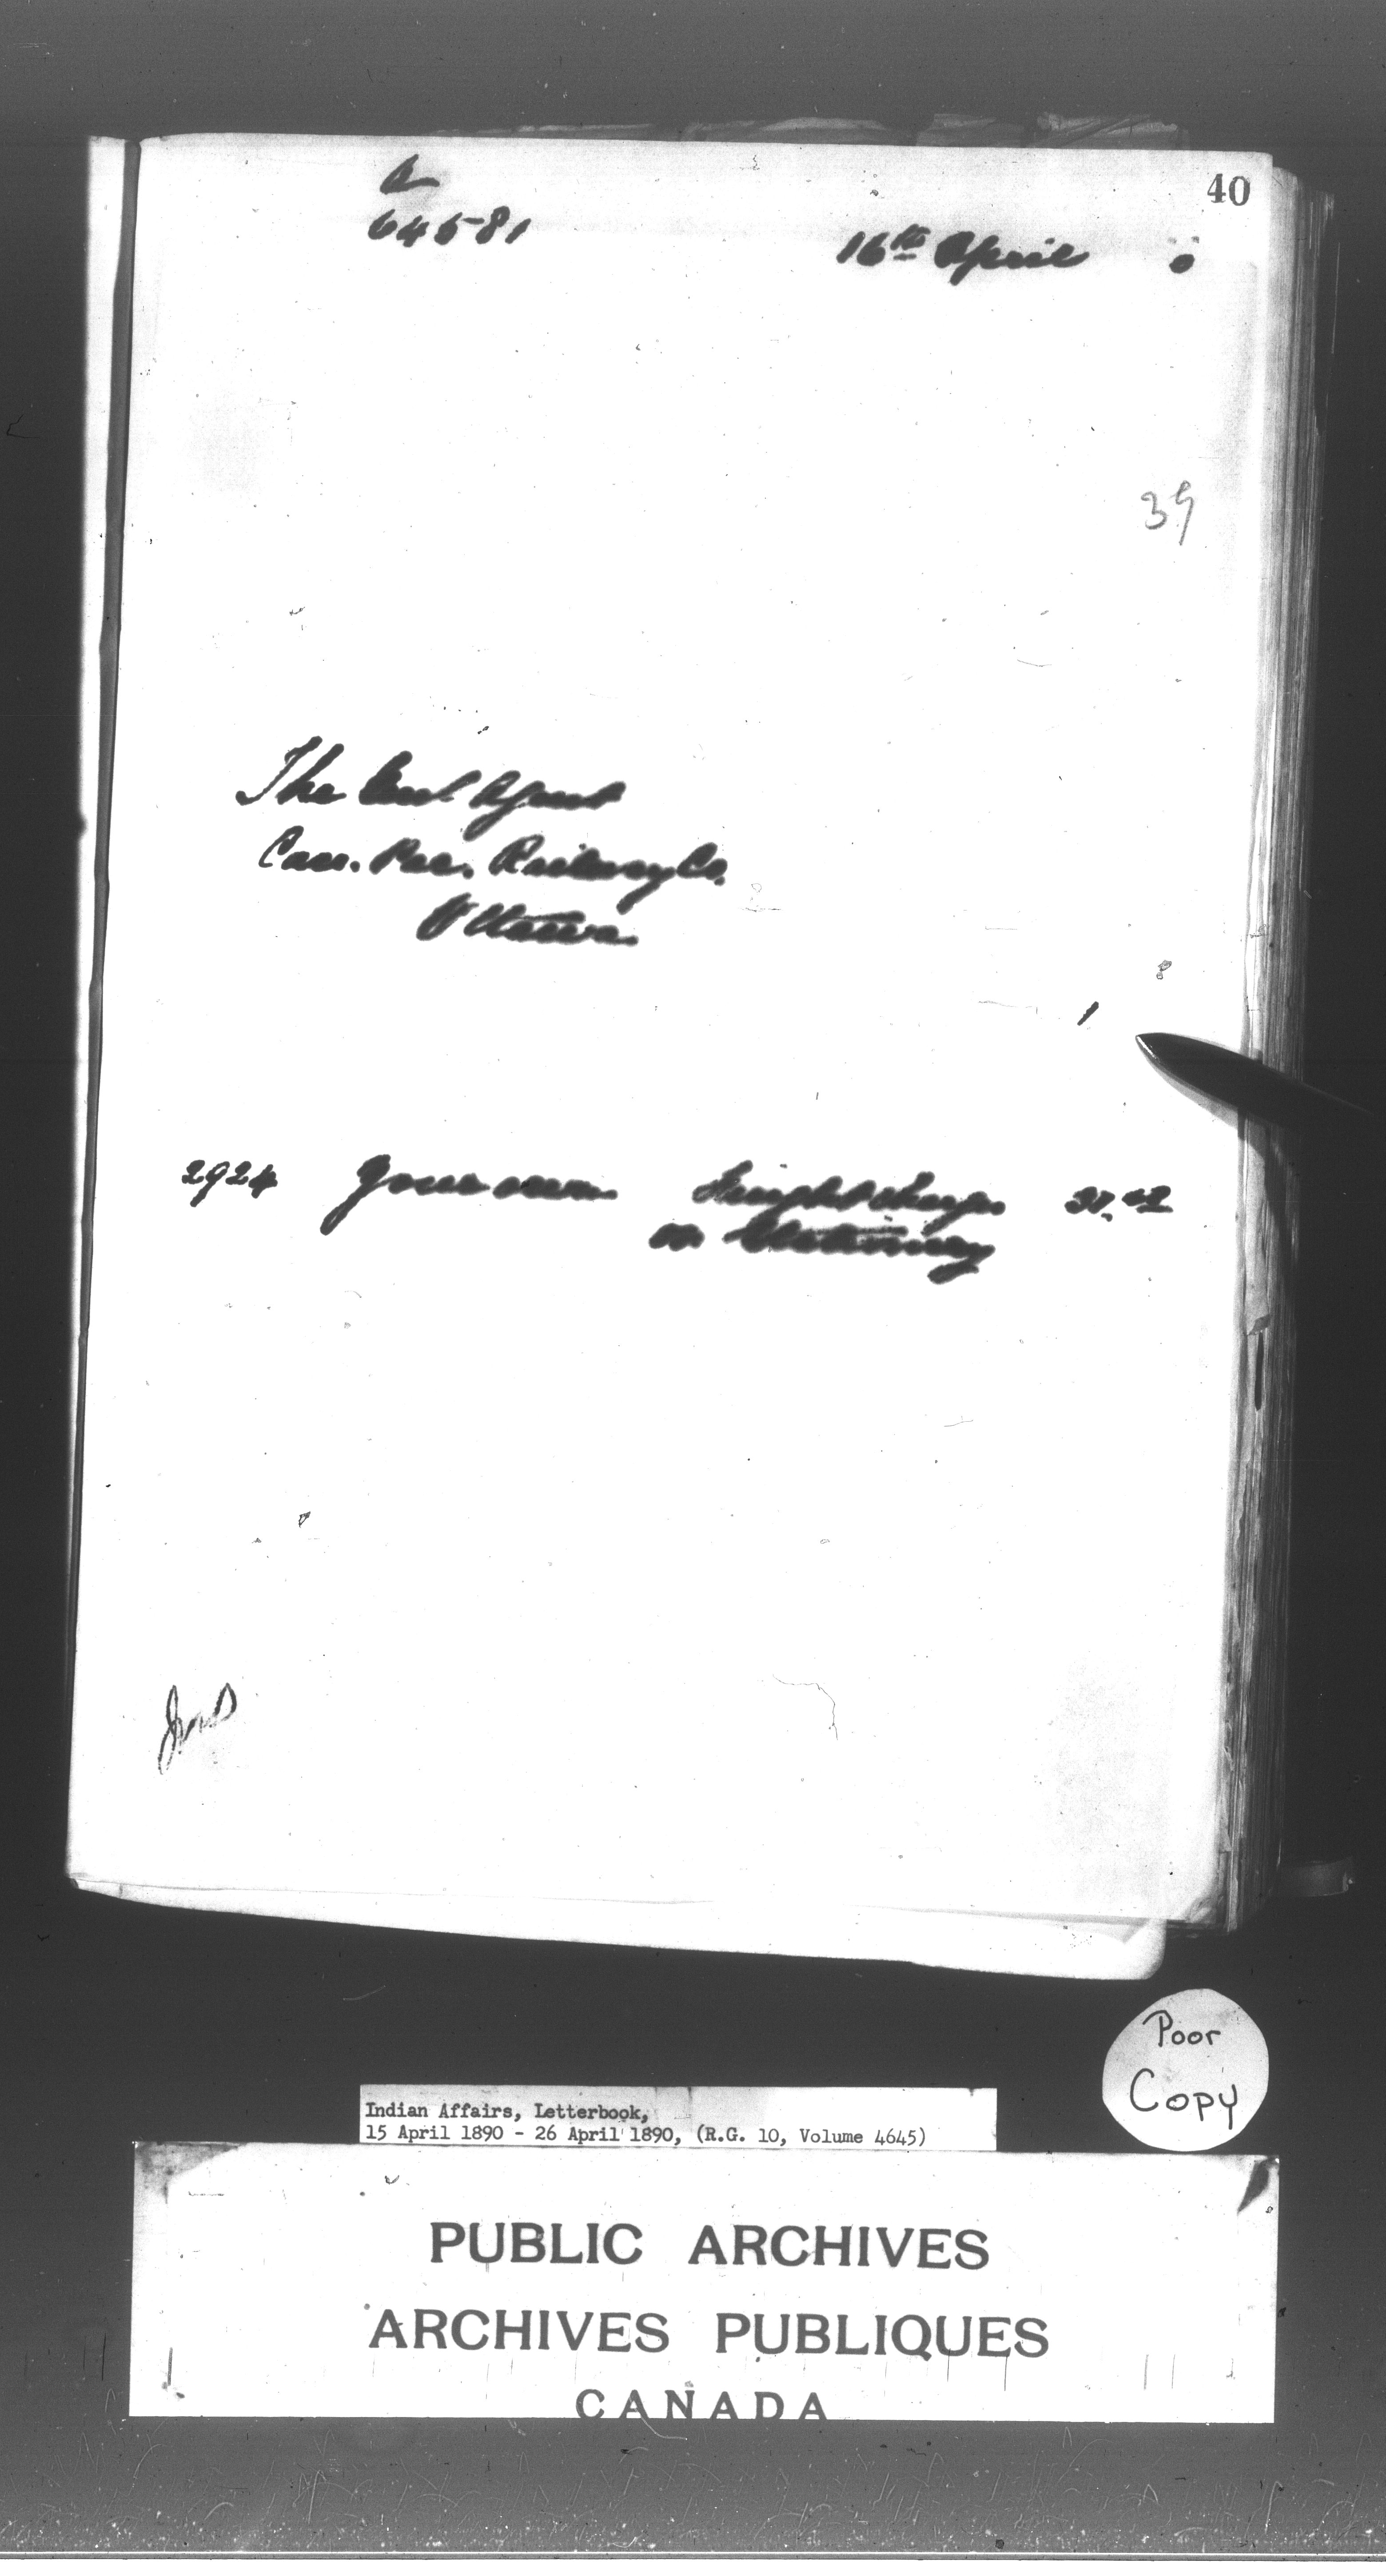 40
64581
16th April 0
39
The Agent
Can. Pac. Railway Co.
Ottawa
1
2924 Yourselves Freight charges
on Stationery
Poor
Copy
Indian Affairs, Letterbook,
15 April 1890 - 26 April 1890, (R.G. 10, Volume 4645)
PUBLIC ARCHIVES
ARCHIVES PUBLIQUES
CANADA